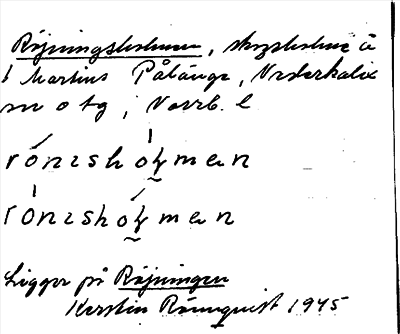 Röjningsholmen, skogsholme å
1 Martins Pålänge, Nederkalix
sn o tg, Norrb. l
rȯ́nɪsholmen
rȯ́nɪsholmen
Ligger på Röjningen
Kerstin Rönnquist 1945